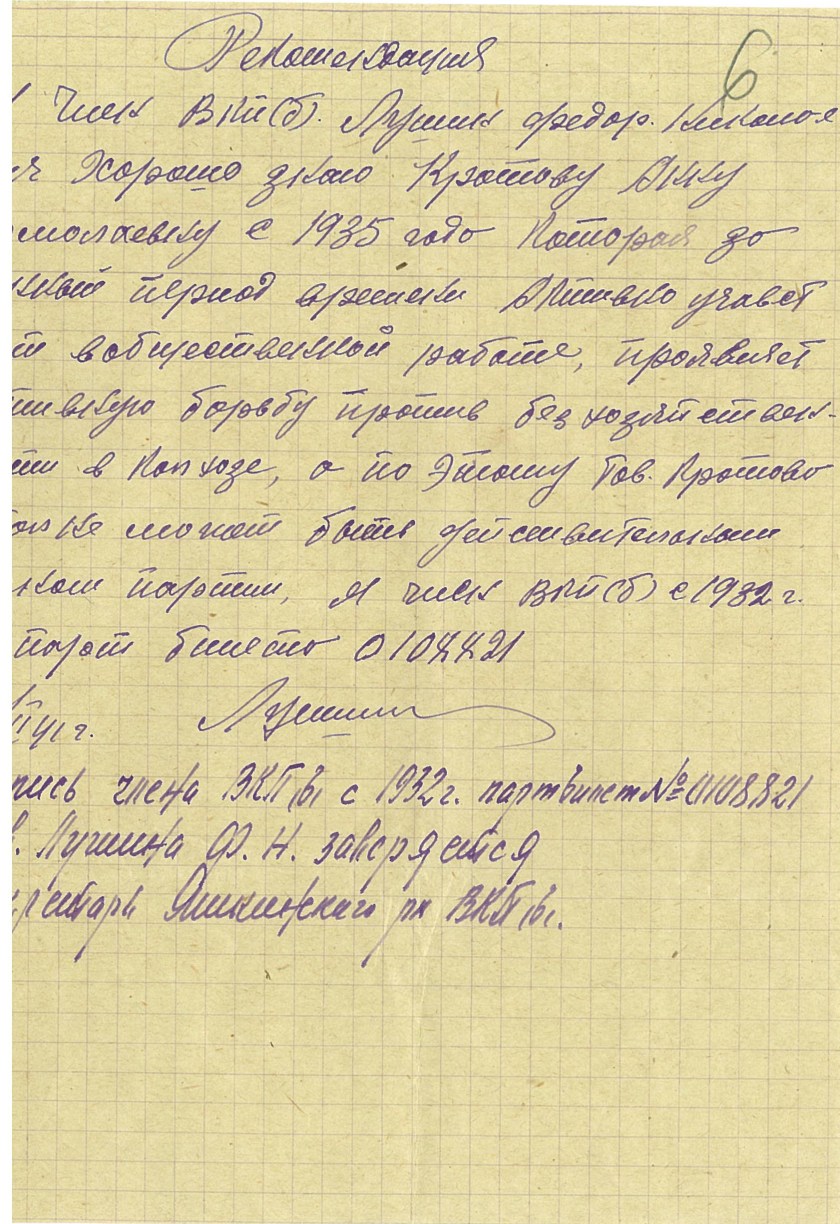 Рекомендация
6
Член ВКП(б). Лушин Федор. Николое
ич Хорошо знаю Кротову Анну
молаевну с 1935 годо Которая до
период времени Активно учавст
т вобщественной работе, проявляет
тивную борьбу против без хозяйствен-
ти в Колхозе, а по Этому Тов. Кротово
не может быть действительным
ном партии, Я член ВКП(б) с 1932 г.
парт билето 0108821
41 г. Лушин
пись члена ВКП/б/ с 1932 г. партбилет № 0108821
в. Лушина Ф. Н. заверяется
кретарь Яшкинскаго рк ВКП/б/.